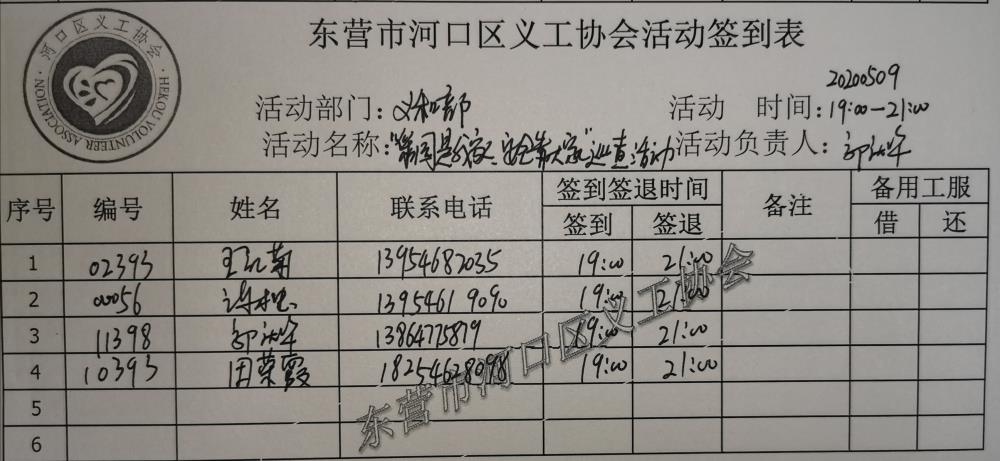 东营市河口区义工协会活动签到表
河口区义工协会
HEKOU VOLUNTEER ASSOCIATION
20200509
活动部门：义和部 活动 时间：19:00—21:00
活动名称："是我家、安全靠大家"巡查活动 活动负责人：郭
序号 编号 姓名 联系电话 签到签退时间 备注 备用工服
签到 签退 借 还
1 02393 王菊 13954682035 19:00 21:00
2 00056 13954619090 19:00 21:00
3 11398 郭 13864775879 19:00 21:00
4 10393 田荣霞 18254628098 19:00 21:00
5
6
东营市河口区义工协会